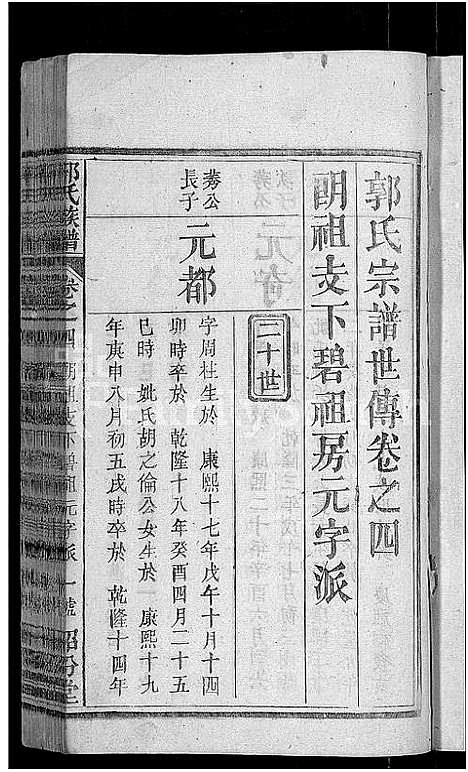 郭氏宗譜世傳卷之四
朙祖支下碧祖房元字派
二十世
莠公長子
元都
字周柱生於　康熙十七年戊午十月十四
卯時卒於　乾隆十八年癸酉四月二十五
巳時　妣氏胡之倫公女生於　康熙十九
年庚申八月初五戌時卒於　乾隆十四年
郭氏族譜　卷之四　朙祖支下碧祖元字派　一號